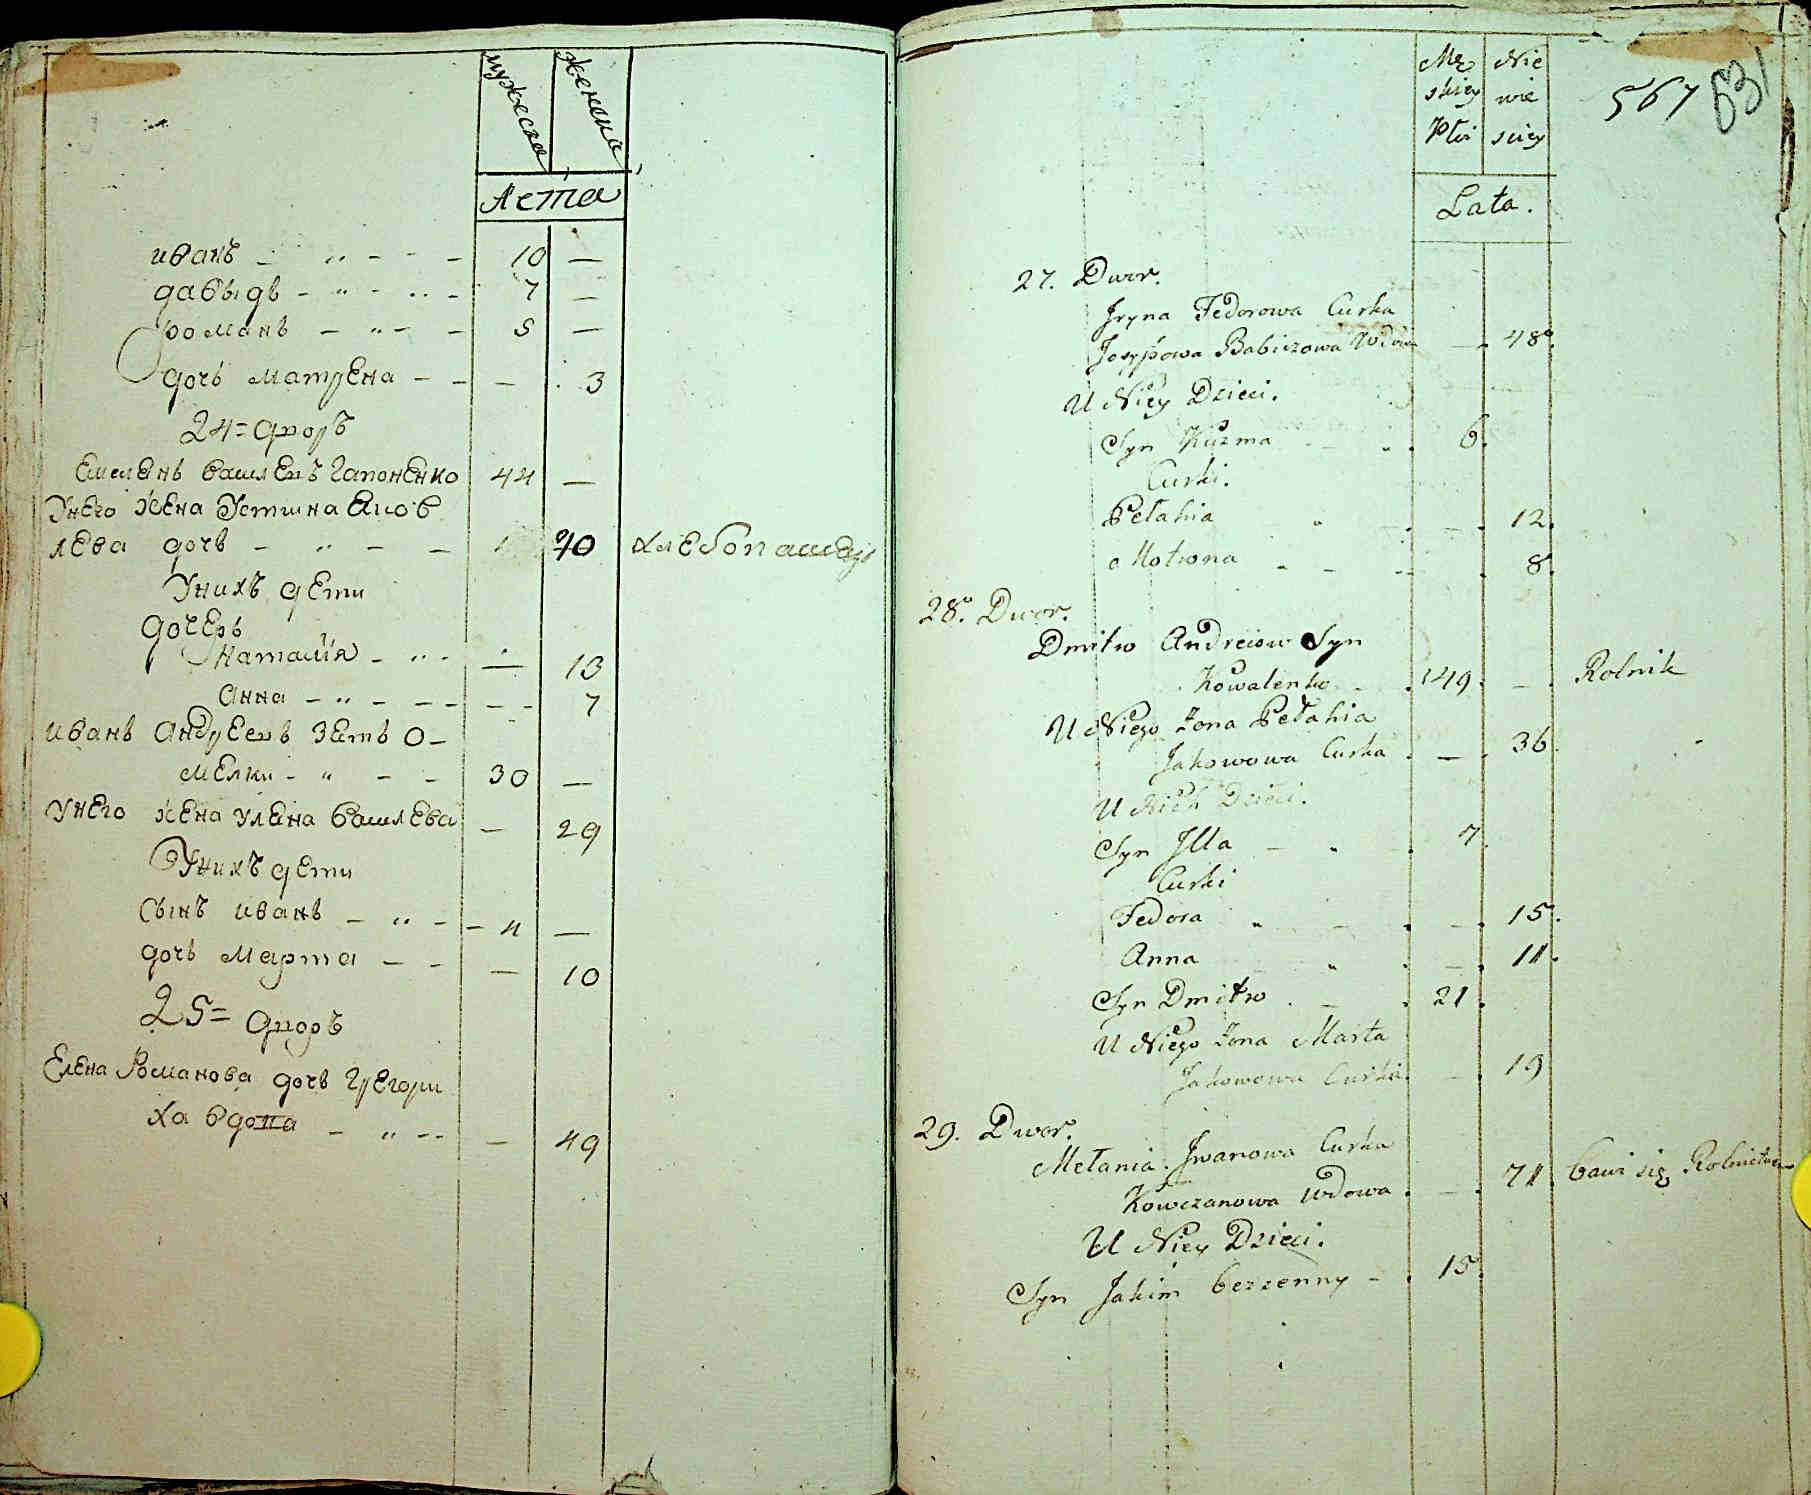 мужеска женска
Лета
иванъ - „ - - - 10 —
давыдъ - „ - „ - 7 —
романъ - „ - - 5 —
дочь матрЕна - - — 3
24 = дворъ
Емелянъ василЕвъ гапонЕнко 44 —
УнЕго жЕна Устина Яков
лЕва дочь - „ - - 40 хлЕбопашецъ
Унихъ дЕти
дочЕрь
наталия - „ - — 13
анна - „ - - - - - 7
иванъ андрЕевъ зять о-
мЕлки - „ - - 30 —
УнЕго жЕна уляна василЕва — 29
Унихъ дЕти
сынъ иванъ - „ - - 4 —
дочь марта - - — 10
25 = дворъ
ЕлЕна Романова дочь грЕгори
ха вдова - „ - - — 49
Męz Nie
skiey wie
Płci sciey
567 631
Lata.
27. Dwor.
Jryna Fedorowa Curka
Josypowa Babiczowa Wdow — 48.
U Niey Dzieci.
Syn Kuzma - - . 6.
Curki.
Pełahia „ - . - 12.
Motrona - - - . 8.
28. Dwor.
Dmitro Andreiow Syn
Kowalenko - . 49. - . Rolnik
U Niego Zona Pełahia
Jakowowa Curka . — . 36.
U Nich Dzieci.
Syn Jlla - „ . 7.
Curki
Fedora „ - . - . 15.
Anna „ . - . 11.
Syn Dmitro . - . 21.
U Niego Zona Marta
Jakowowa Curka. - . 19
29. Dwor.
Mełania Jwanowa Curka
Kowczanowa Wdowa . — . 71. bawi się Rolnictwem
U Niey Dzieci.
Syn Jakim bezzenny - . 15.